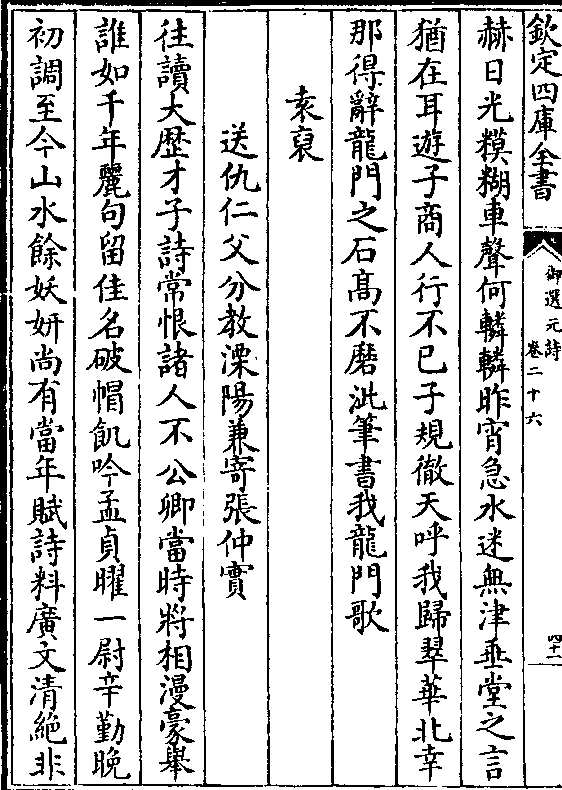 欽定四庫全書
御選元詩
卷二十六
四十一
赫日光糢糊車聲何轔轔昨宵急水迷無津垂堂之言
猶在耳遊子商人行不已子規徹天呼我歸翠華北幸
那得辭龍門之石髙不磨泚筆書我龍門歌
袁裒
送仇仁父分教溧陽兼寄張仲實
往讀大歴才子詩常恨諸人不公卿當時將相漫豪舉
誰如千年麗句留佳名破帽飢吟孟貞曜一尉辛勤晩
初調至今山水餘妖妍尚有當年賦詩料廣文清絶非